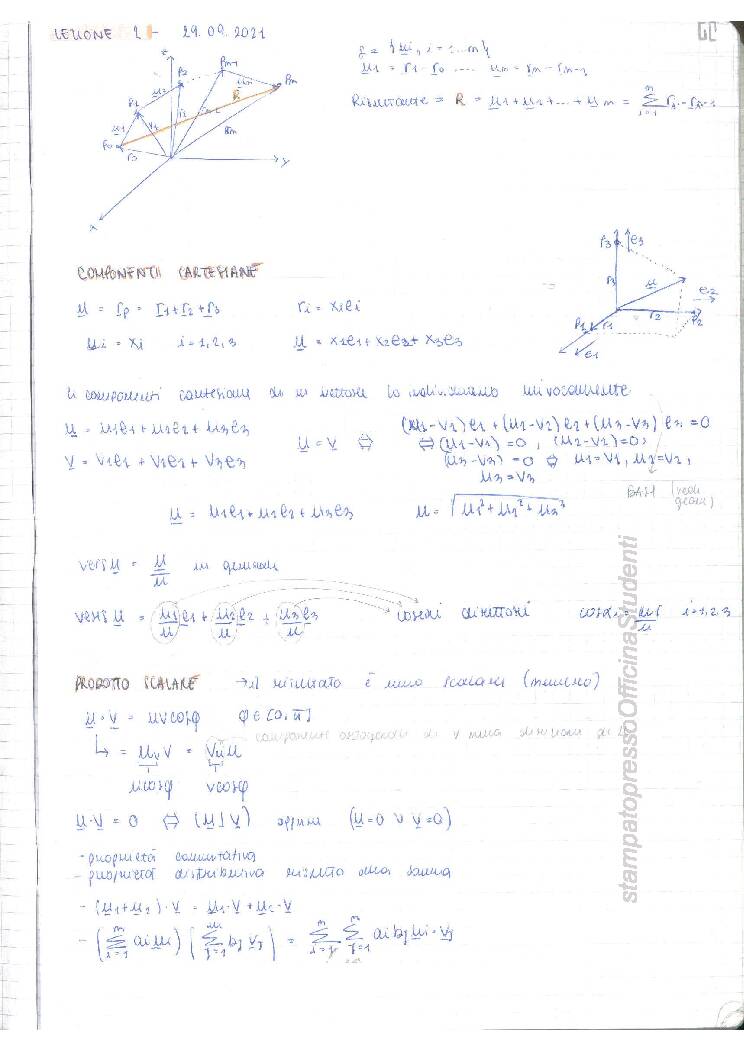 LEZIONE 2 - 29.09.2021
z
P2
Pm-1
Pm
u2
um
R
P1
u1
P0
r0
rm
y
x
S = {ui, i = 1...m}
u1 = r1 - r0 .... um = rm - rm-1
Risultante = R = u1 + u2 + ... + um = Σ ri - ri-1
i=1
m
COMPONENTI CARTESIANE
P3
e3
r3
u
e2
r2
P2
P1
r1
e1
u = rp = r1 + r2 + r3
ri = xiei
ui = xi i = 1,2,3
u = x1e1 + x2e2 + x3e3
le componenti cartesiane di un vettore lo individuano univocamente
u = u1e1 + u2e2 + u3e3
v = v1e1 + v2e2 + v3e3
u = v ⇔
(u1-v1)e1 + (u2-v2)e2 + (u3-v3)e3 = 0
⇔ (u1-v1) = 0, (u2-v2) = 0,
(u3-v3) = 0 ⇔ u1 = v1, u2 = v2,
u3 = v3
BASI (vedi
geom)
u = u1e1 + u2e2 + u3e3
u = √u1² + u2² + u3²
vers u = u/u in generale
vers u = u1/u e1 + u2/u e2 + u3/u e3
coseni direttori
cosαi = ui/u i=1,2,3
PRODOTTO SCALARE → il risultato è uno scalare (numero)
u · v = uv cosφ φ ∈ [0, π]
componente ortogonale di v nella direzione di u
↳ = uv v = vu u
u cosφ v cosφ
u · v = 0 ⇔ (u ⊥ v) oppure (u = 0 ∨ v = 0)
- proprietà commutativa
- proprietà distributiva rispetto alla somma
- (u1 + u2) · v = u1 · v + u2 · v
- (Σ ai ui) (Σ bj vj) = Σ Σ ai bj ui · vj
stampatopressoOfficinaStudenti